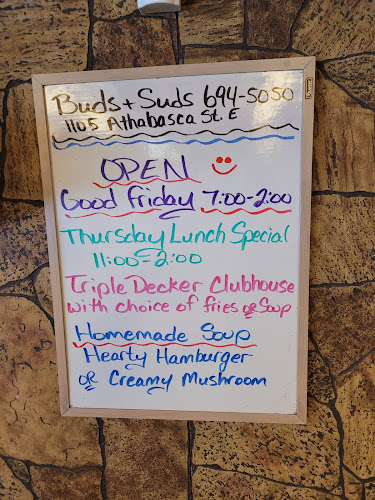 Buds + Suds 694-5050
1105 Athabasca St. E
OPEN
Good Friday 7:00-2:00
Thursday Lunch Special
11:00-2:00
Triple Decker Clubhouse
with choice of fries or Soup
Homemade Soup
Hearty Hamburger
or Creamy Mushroom